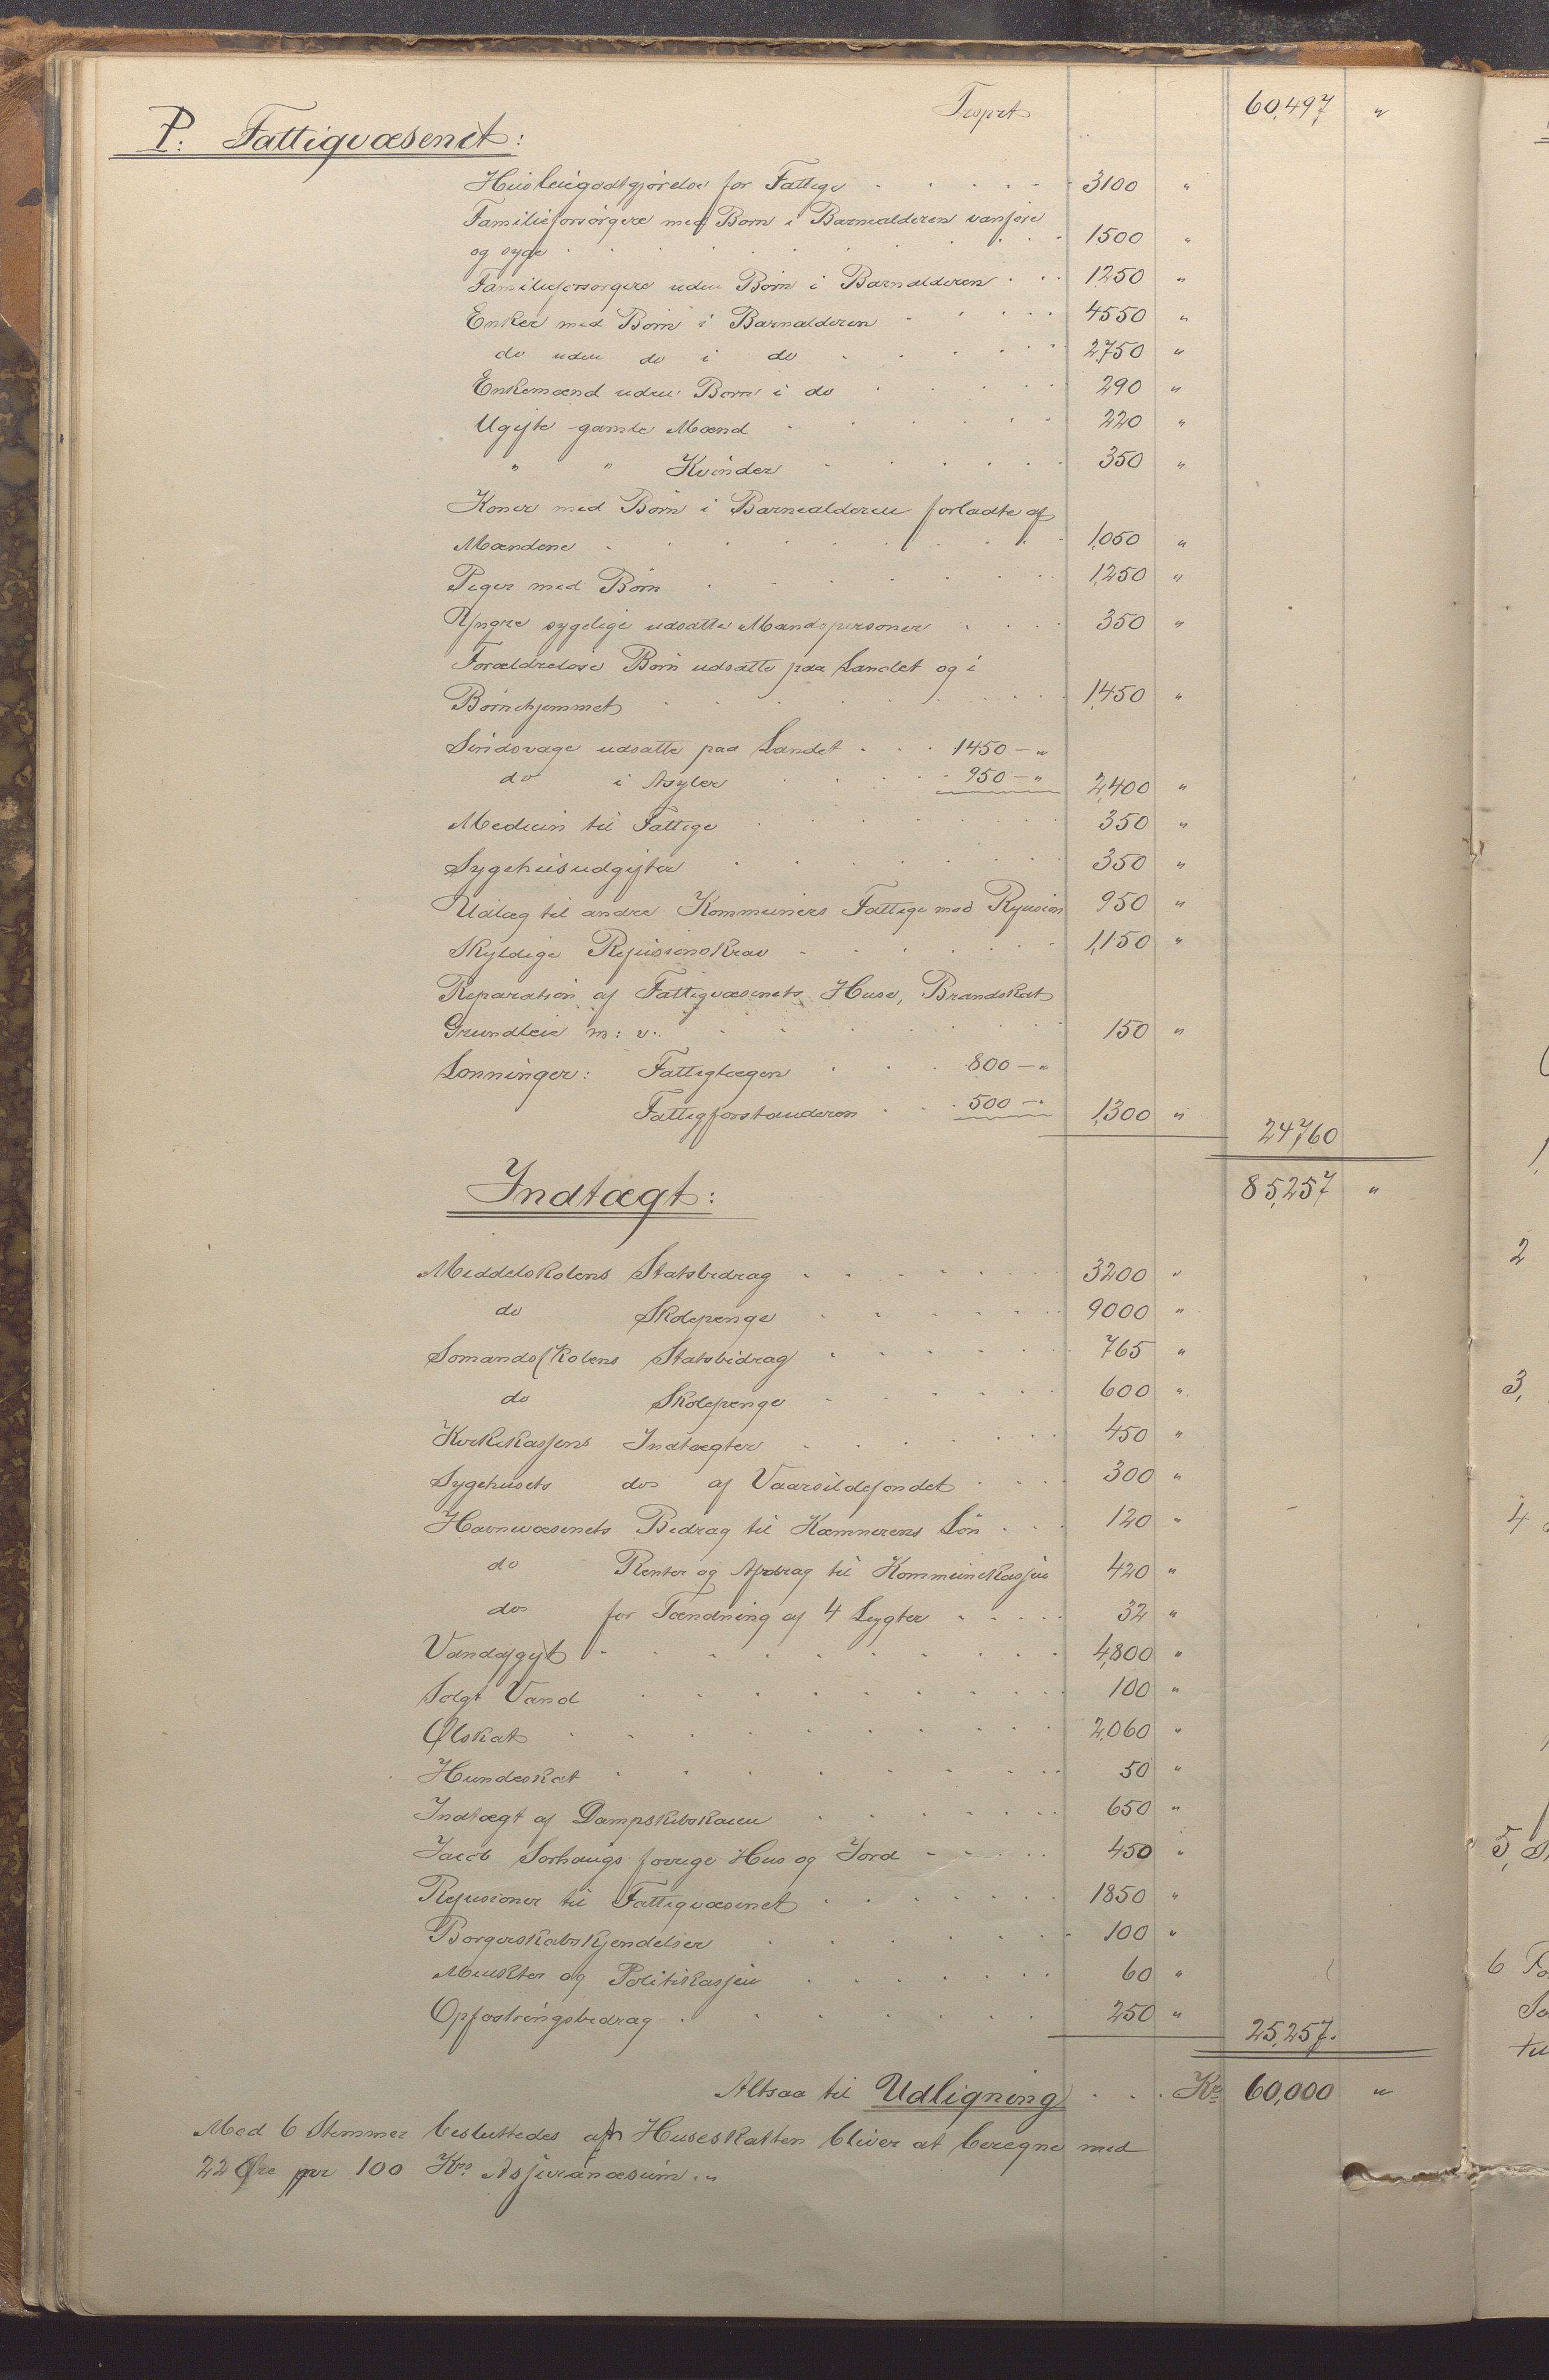 Trsprt 60,497 "
P. Fattigvæsenet:
Husleiegodtgjørelse for Fattige . . . . . 3100 "
Familieforsørgere med Børn i Barnealderen vanføre
og syge . . . . . . . . 1500 "
Familieforsørgere uden Børn i Barnalderen . . . 1250 "
Enker med Børn i Barnalderen . . . . . 4550 "
do uden do i do . . . . . 2,750 "
Enkemænd uden Børn i do . . . . . 290 "
Ugifte gamle Mænd . . . . . . 220 "
" " Kvinder . . . . . . 350 "
Koner med Børn i Barnealderen forladte af
Mændene . . . . . . . . 1,050 "
Piger med Børn . . . . . . . 1,250 "
Yngre sygelige udsatte Mandspersoner . . . . 350 "
Forældreløse Børn udsatte paa Landet og i
Børnehjemmet . . . . . . . . 1,450 "
Sindsvage udsatte paa Landet . . . 1450 – "
do i Asyler . . . . . 950 – " 2,400 "
Medicin til Fattige . . . . . . . 350 "
Sygehusudgifter . . . . . . . 350 "
Udlæg til andre Kommuners Fattige mod Refusion 950 "
Skyldige Refusionskrav . . . . . . 1,150 "
Reparation af Fattigvæsenets Huse, Brandskat
Grundleie m: v. . . . . . . . 150 "
Lønninger: Fattiglægen . . . 800 – "
Fattigforstanderen . . . 500 – " 1,300 " 24,760
85,257 "
Indtægt:
Middelskolens Statsbidrag . . . . . . 3200 "
do Skolepenge . . . . . . 9000 "
Sømandsskolens Statsbidrag . . . . . . 765 "
do Skolepenge . . . . . . 600 "
Kirkekassens Indtægter . . . . . . 450 "
Sygehusets do af Vaarsildefondet . . . . 300 "
Havnevæsenets Bidrag til Kæmnerens Løn . . . 120 "
do Renter og Afdrag til Kommunekassen 420 "
do for Tændning af 4 Lygter . . . . . 32 "
Vandafgift . . . . . . . . . 4,800 "
Solgt Vand . . . . . . . . . 100 "
Ølskat . . . . . . . . . 2,060 "
Hundeskat . . . . . . . . . 50 "
Indtægt af Dampskibskaien . . . . . . 650 "
Jacob Sørhaugs forrige Hus og Jord . . . . . 450 "
Refusioner til Fattigvæsenet . . . . . . 1850 "
Borgerskabskjendelser . . . . . . . 100 "
Mulkter og Politikassen . . . . . . . 60 "
Opfostringsbidrag . . . . . . . 250 " 25,257.
Altsaa til Udligning . . . Kr 60,000 "
Med 6 Stemmer besluttedes at Huseskatten bliver at beregne med
22 Øre per 100 Krs Assurancesum. "